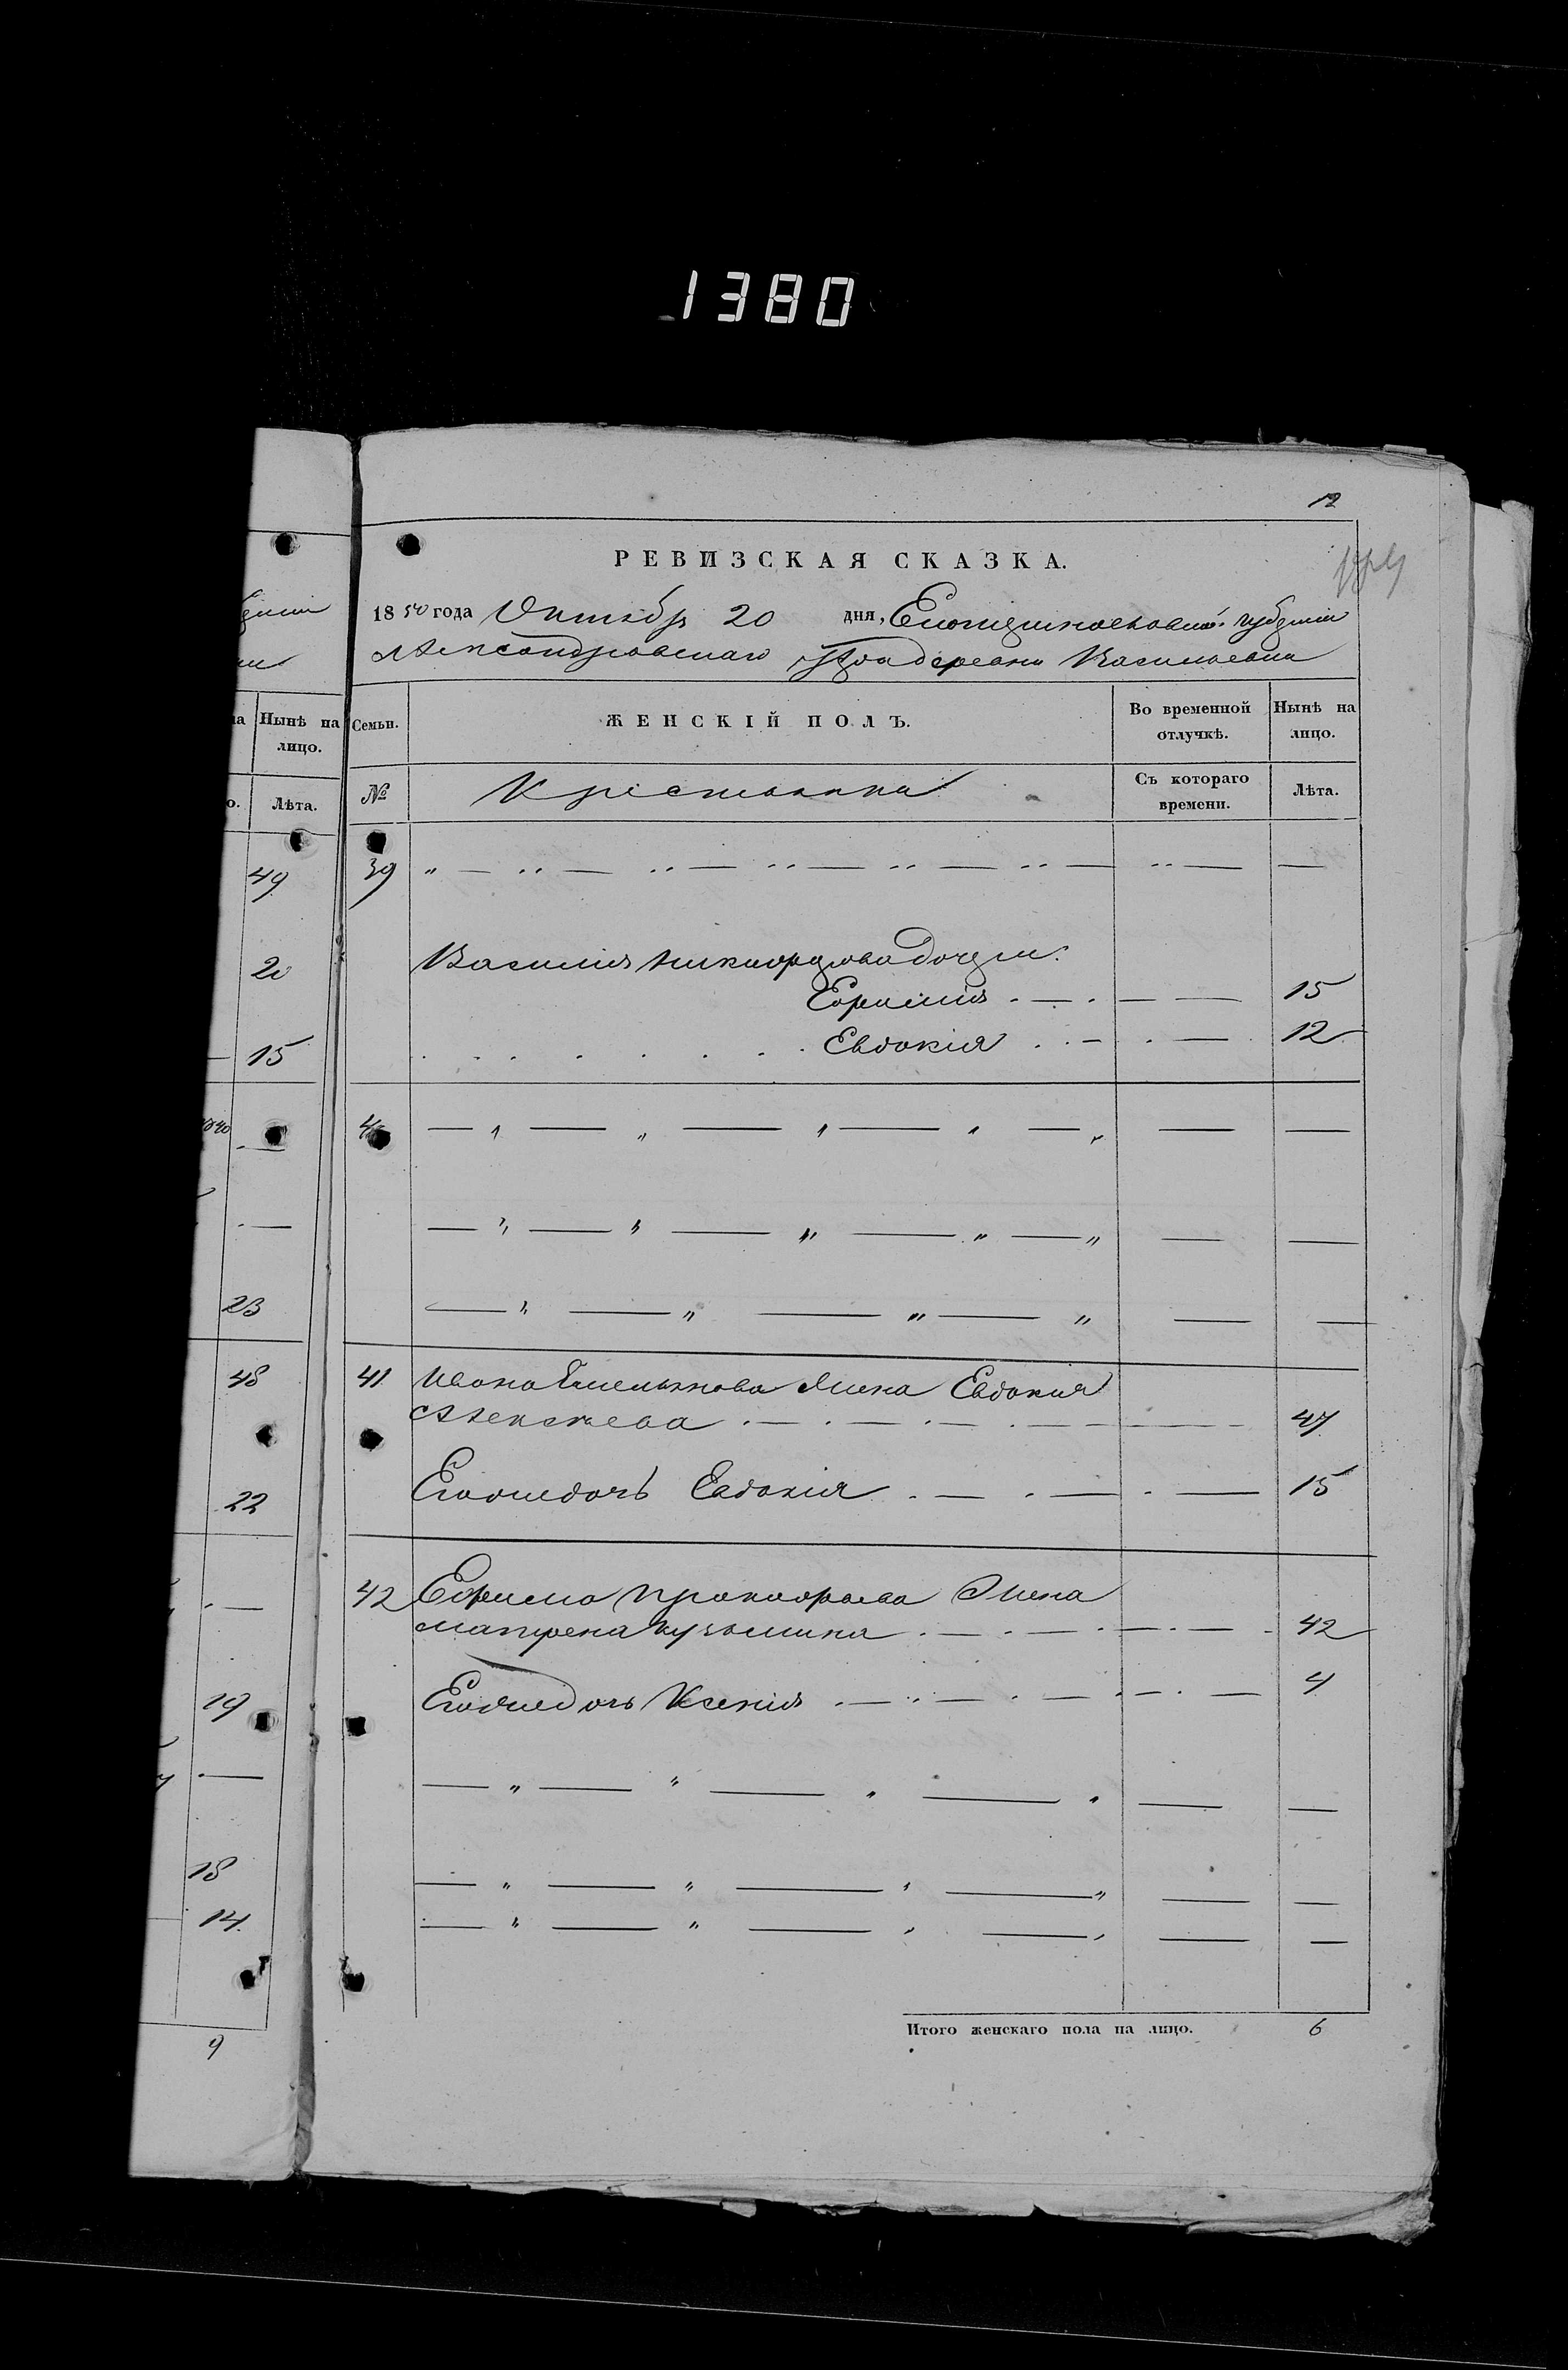 1380
12
РЕВИЗСКАЯ СКАЗКА.
1850 года Октябр 20 дня, Екатеринославской губернии
Александровскаго уезда деревни Васильевки
на
Нынѣ на лицо.
Семьи.
ЖЕНСКІЙ ПОЛЪ.
Во временной отлучкѣ.
Нынѣ на лицо.
о.
Лѣта.
№
Крестьянки
Съ котораго времени.
Лѣта.
49
39 " — " — " — " — " — " — " — —
20
Василия Никифорова дочери:
Ефимия . — . — — 15
15
. . . . . . . . Евдокия . . — . — . 12
— " — " — " — " — " — —
— " — " — " — " — " — —
23
— " — " — " — " — —
48
41 Ивана Емельянова жена Евдокия
Алексеева . — . — . — . — — 47
22
Его же дочь Евдокия . — . — . — 15
42 Ефима Прокофьева жена
Матрена Кузьмина . — . — . — . — . 42
19
Его же дочь Ксения . — . — . — . — . — 4
— " — " — " — " — —
18
— " — " — " — " — —
14
— " — " — " — " — —
9
Итого женскаго пола на лицо. 6